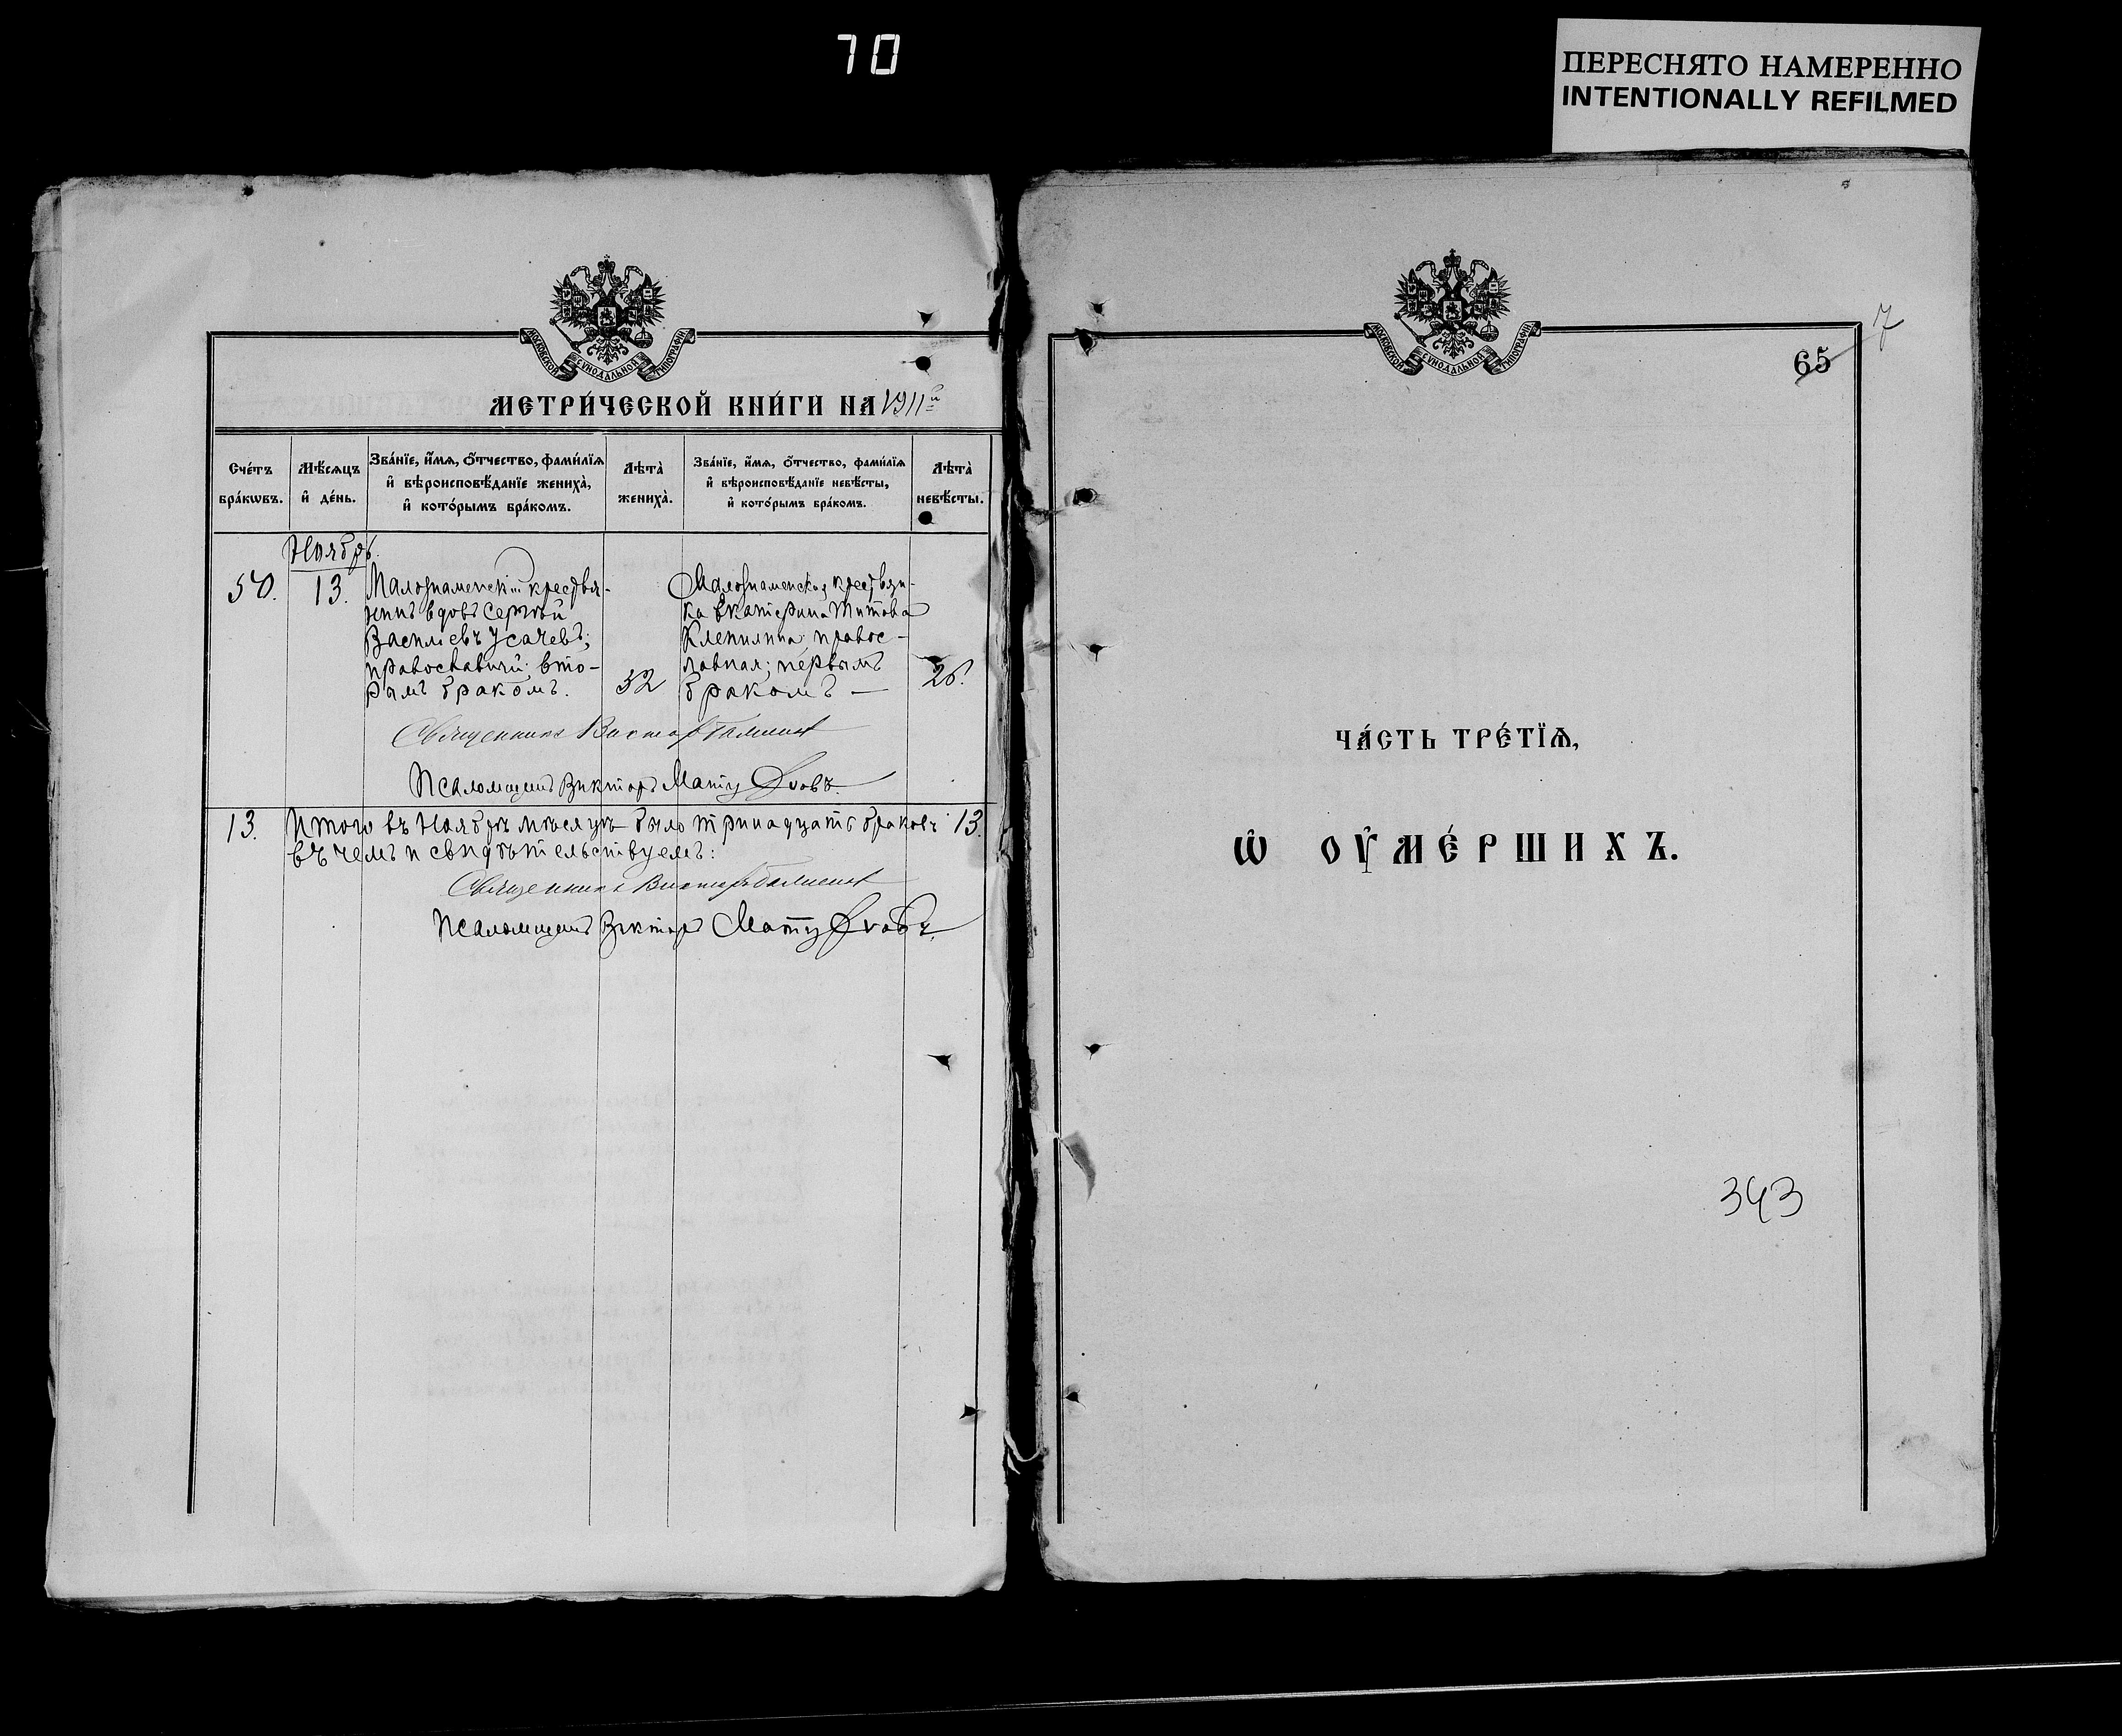 70
ПЕРЕСНЯТО НАМЕРЕННО
INTENTIONALLY REFILMED
МОСКОВСКОЙ СѴНОДАЛЬНОЙ ТИПОГРАФІИ
МЕТРИ́ЧЕСКОЙ КНИ́ГИ НА 1911й
Сче́тъ бра́кѡвъ.
Мѣ́сяцъ и҆ де́нь.
Зва́нїе, и҆́мѧ, ѻ҆́тчество, фами́лїѧ
и҆ вѣроисповѣ́данїе жениха̀,
и҆ кото́рымъ бра́комъ.
Лѣта̀ жениха̀.
Зва́нїе, и҆́мѧ, ѻ҆́тчество, фами́лїѧ
и҆ вѣроисповѣ́данїе невѣ́сты,
и҆ кото́рымъ бра́комъ.
Лѣта̀ невѣ́сты.
Ноябрь.
50.
13.
Малознаменскій крестья-
нинъ вдовъ Сергѣй
Василіевъ Усачевъ;
православный; вто-
рымъ бракомъ.
32
Малознаменская крестьян-
ка Екатерина Титова
Клепилина; правос-
лавная; первымъ
бракомъ —
26.
Священникъ Викторъ
Псаломщикъ Викторъ
13. Итого въ Ноябрѣ мѣсяцѣ было тринадцать браковъ 13.
въ чемъ и свидѣтельствуемъ:
Священникъ Викторъ
Псаломщикъ Викторъ
МОСКОВСКОЙ СѴНОДАЛЬНОЙ ТИПОГРАФІИ
7
65
ЧА́СТЬ ТРЕ́ТЇѦ,
Ѡ҆ ОУ҆МЕ́РШИХЪ.
343